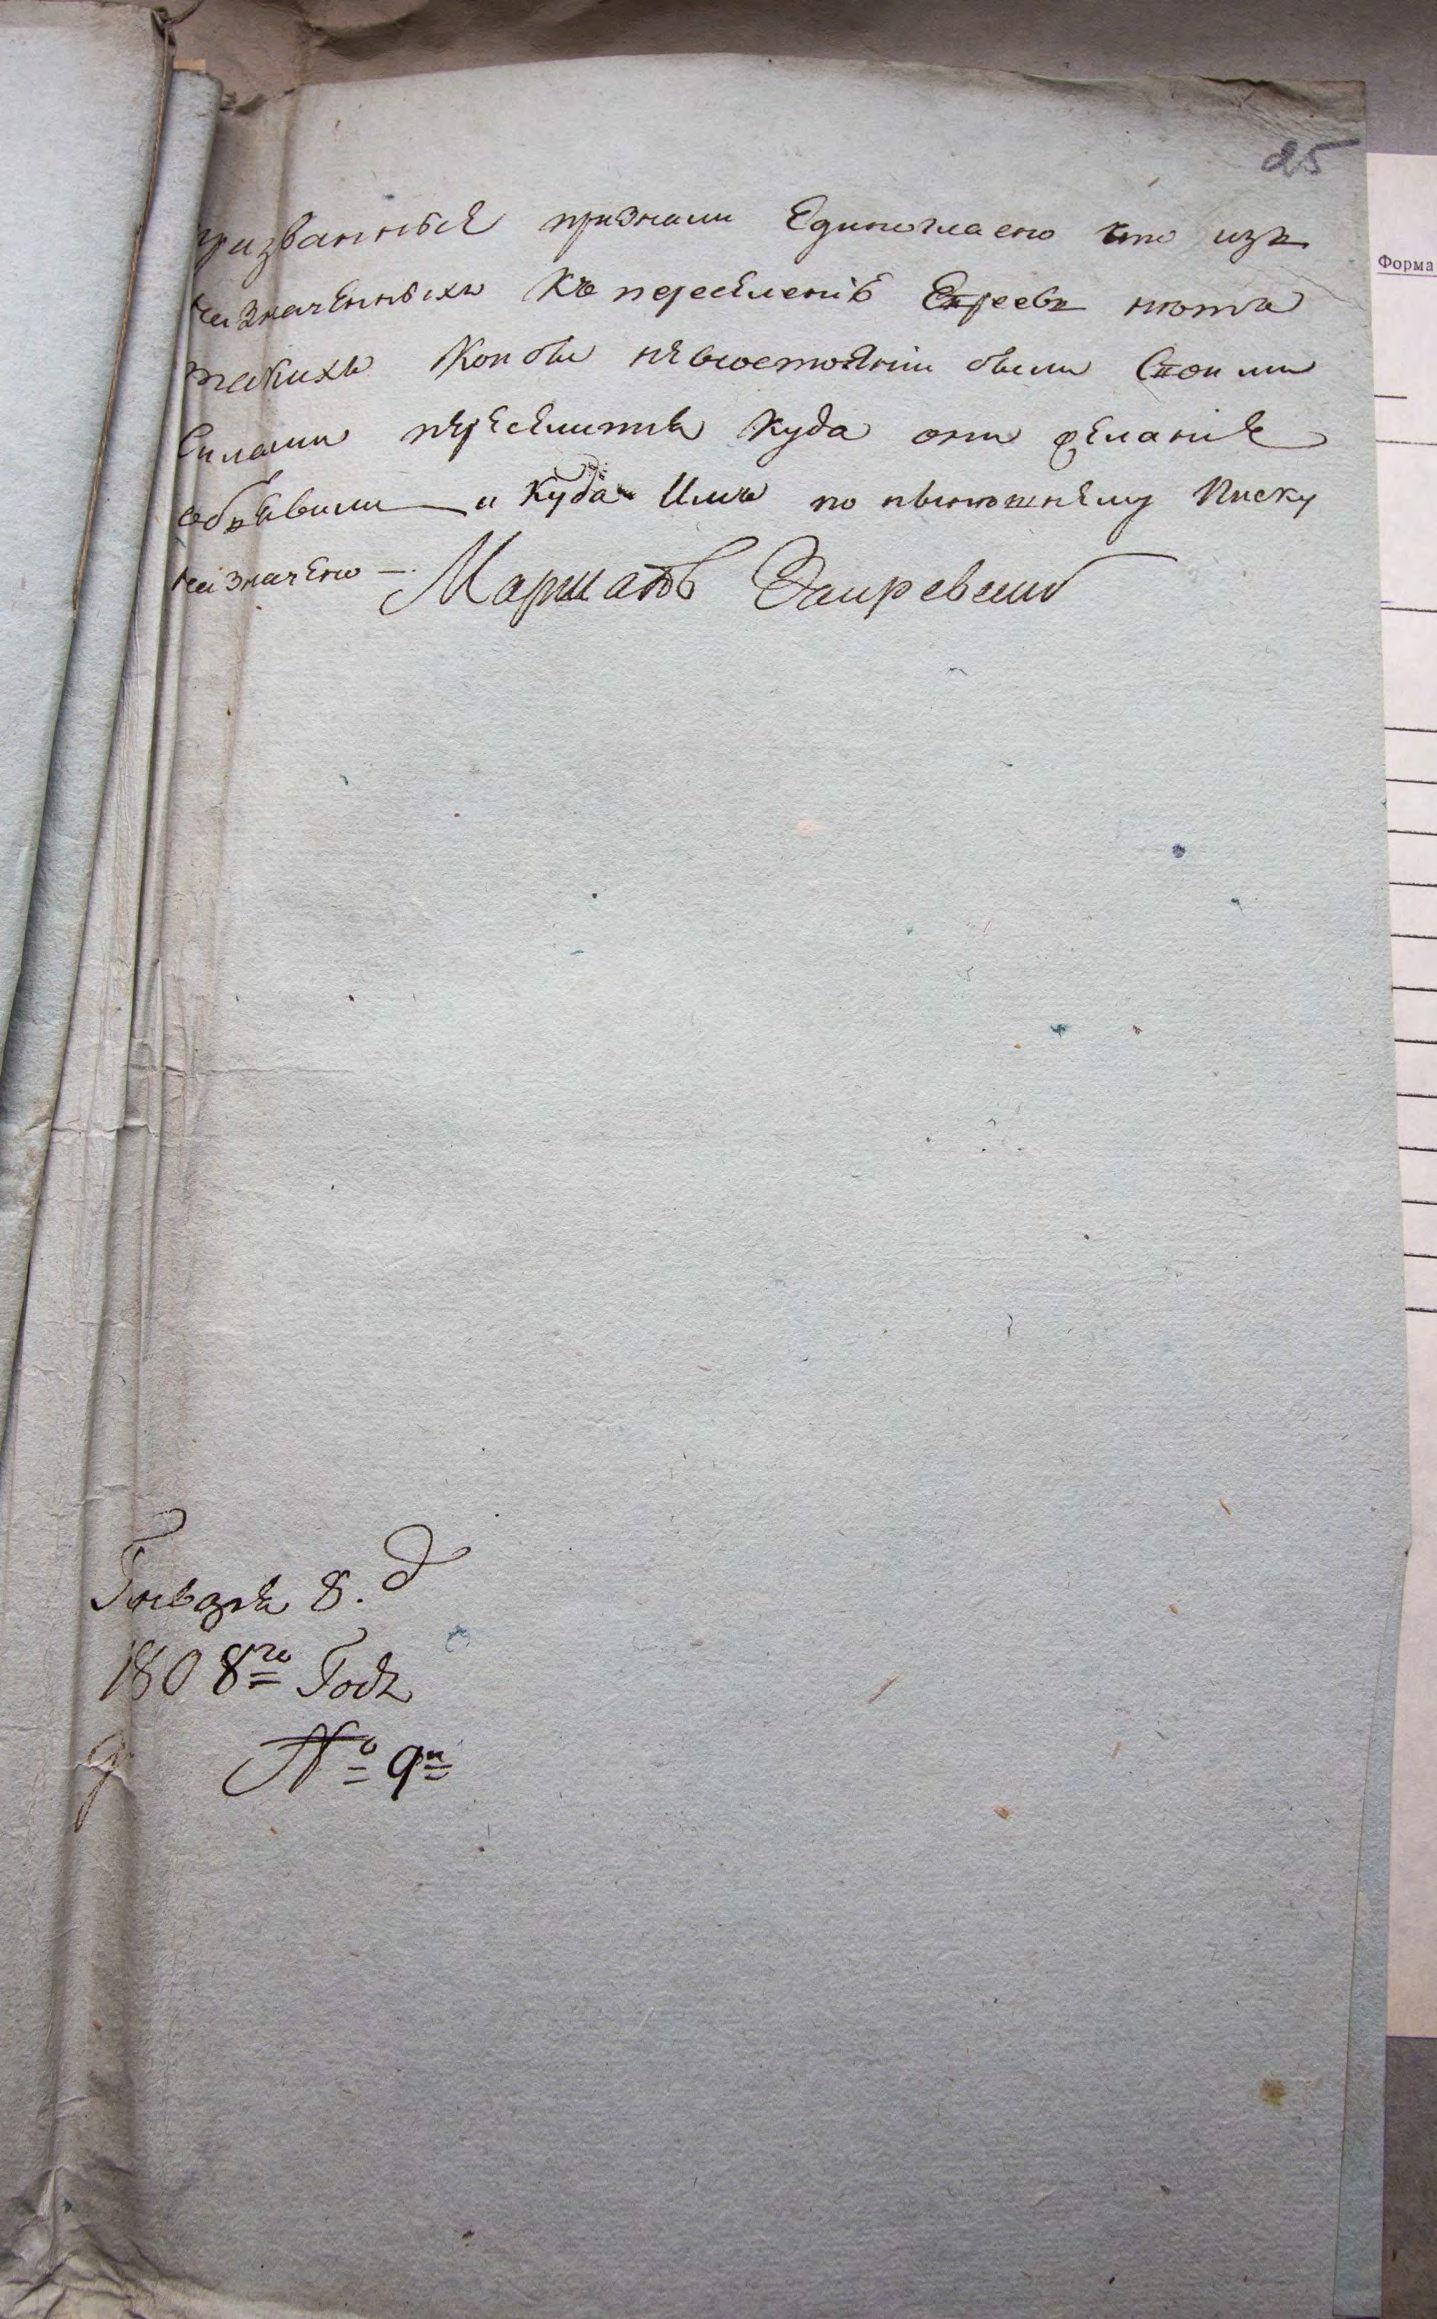 25
призванные признали Единогласно что изъ
назначенныхъ Къ переселенію Евреевъ нѣтъ
такихъ Кои бы невсостоянии были Своими
Силами переселится куда они желание
объявили и куда Имъ по нынешнему Писку
назначено —. Маршалъ
Генваря 8. д
1808го Годъ
№ 9и
9
Форма